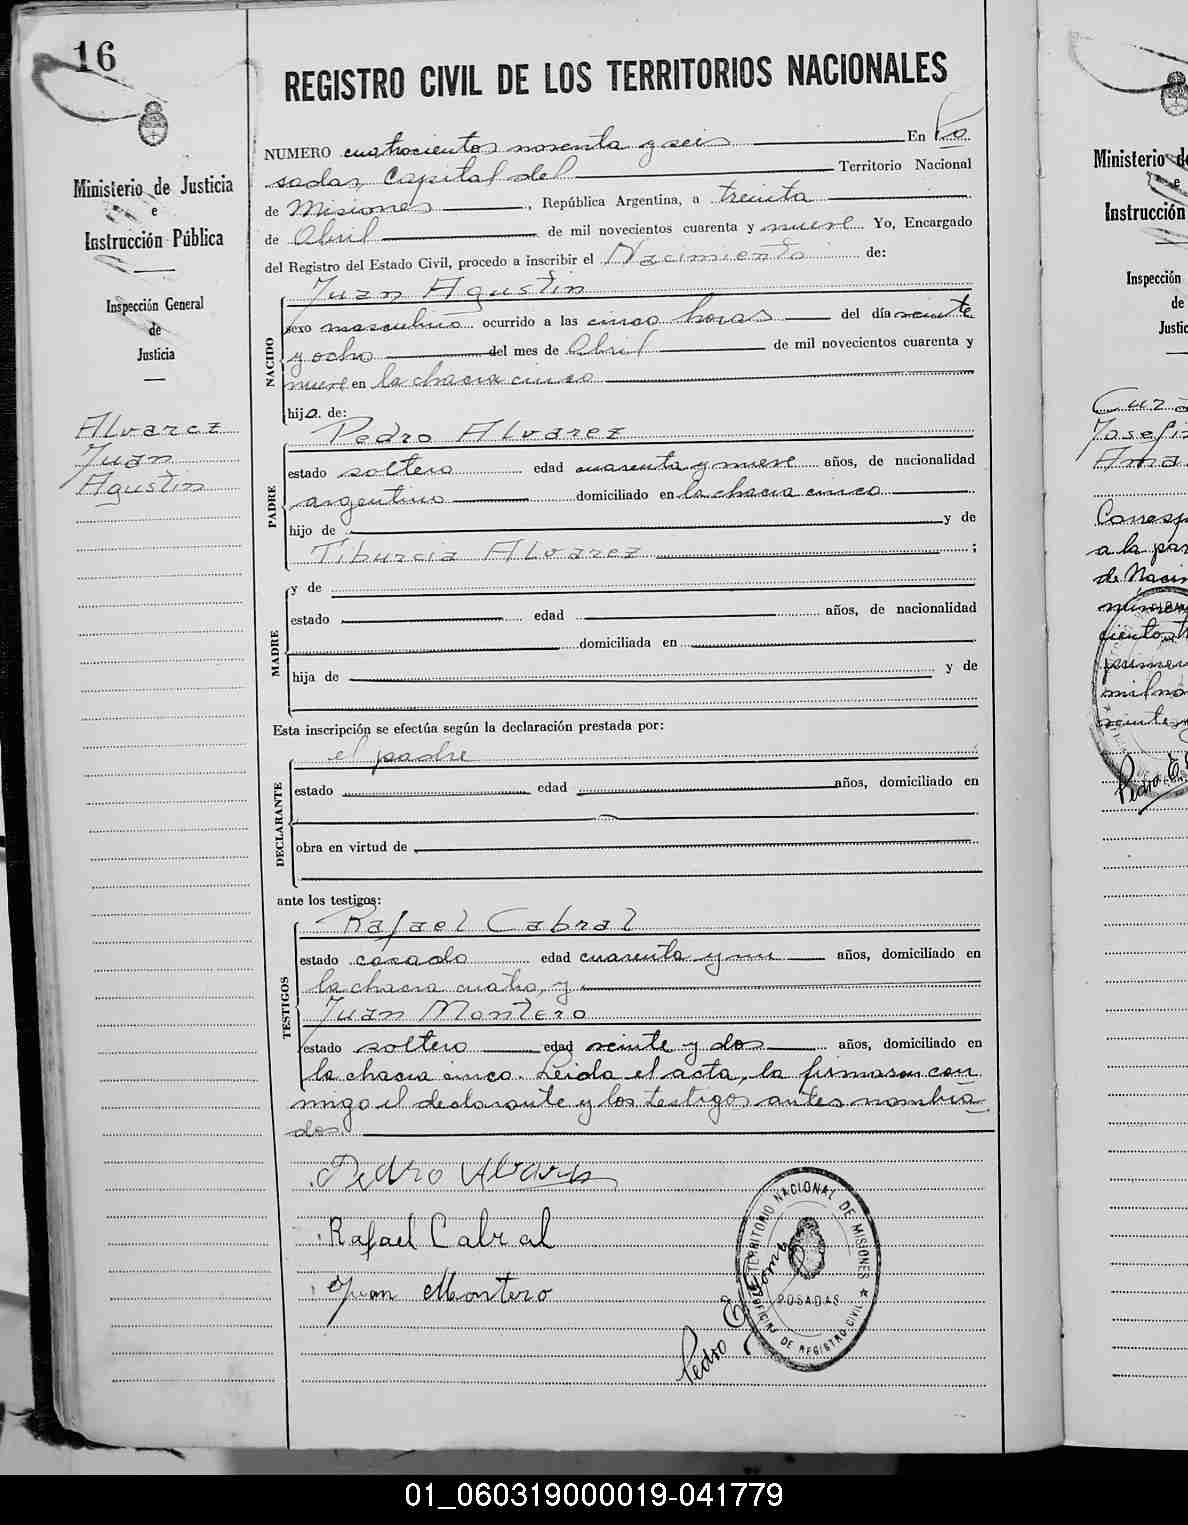 16
REGISTRO CIVIL DE LOS TERRITORIOS NACIONALES
Ministerio de Justicia
e
Instrucción Pública
Inspección General
de
Justicia
Alvarez
Juan
Agustin
NUMERO cuatrocientos noventa y seis En Po
sadas, Capital del Territorio Nacional
de Misiones, República Argentina, a treinta
de Abril de mil novecientos cuarenta y nueve Yo, Encargado
del Registro del Estado Civil, procedo a inscribir el Nacimiento de:
NACIDO
Juan Agustin
sexo masculino ocurrido a las cinco horas del día veinte
y ocho del mes de Abril de mil novecientos cuarenta y
nueve en la chacra cinco
hijo de:
PADRE
Pedro Alvarez
estado soltero edad cuarenta y nueve años, de nacionalidad
argentino domiciliado en la chacra cinco
hijo de y de
Tiburcia Alvarez ;
MADRE
y de
estado edad años, de nacionalidad
domiciliada en
hija de y de
Esta inscripción se efectúa según la declaración prestada por:
DECLARANTE
el padre
estado edad años, domiciliado en
obra en virtud de
ante los testigos:
TESTIGOS
Rafael Cabral
estado casado edad cuarenta y un años, domiciliado en
la chacra cuatro, y
Juan Montero
estado soltero edad veinte y dos años, domiciliado en
la chacra cinco. Leida el acta, la firmaron con
migo el declarante y los testigos antes nombra
dos.
Pedro Alvarez
Rafael Cabral
Juan Montero
TERRITORIO NACIONAL DE MISIONES
POSADAS
OFICINA DE REGISTRO CIVIL
Pedro E.
Ministerio de
e
Instrucción
Inspección
de
Justic
Josefi
a la par
de Nacim
Pedro E.
01_060319000019-041779